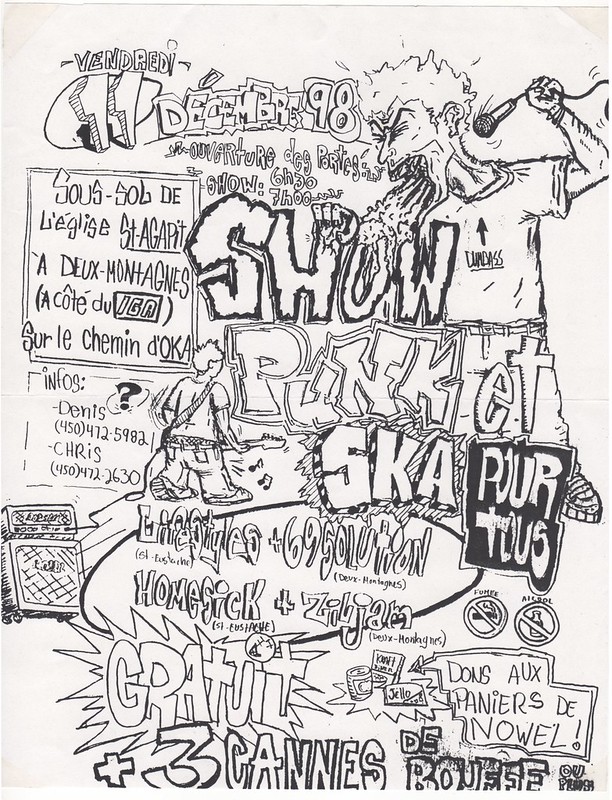 VENDREDI
11 DÉCEMBRE '98
OUVERTURE des PORTES:
6h30
SHOW: 7h00
SOUS-SOL DE
L'église St-AGAPIT
À DEUX-MONTAGNES
(À CÔTÉ du IGA)
Sur le chemin d'OKA
SHOW
DUMBASS
PUNK et
SKA POUR
TOUS
infos:
?
-Denis
(450)472-5982
-CHRIS
(450)472-2630
LifeStyles + 69 SOLUTION
(St-Eustache)
(Deux-Montagnes)
HOMESICK + Ziljam
(St-EUSTACHE)
(Deux-Montagnes)
FUMÉE
ALCOOL
GRATUIT
KRAFT
Jello
DONS AUX
PANIERS DE
NOWEL!
+ 3 CANNES DE BOUFFE OU PLUS